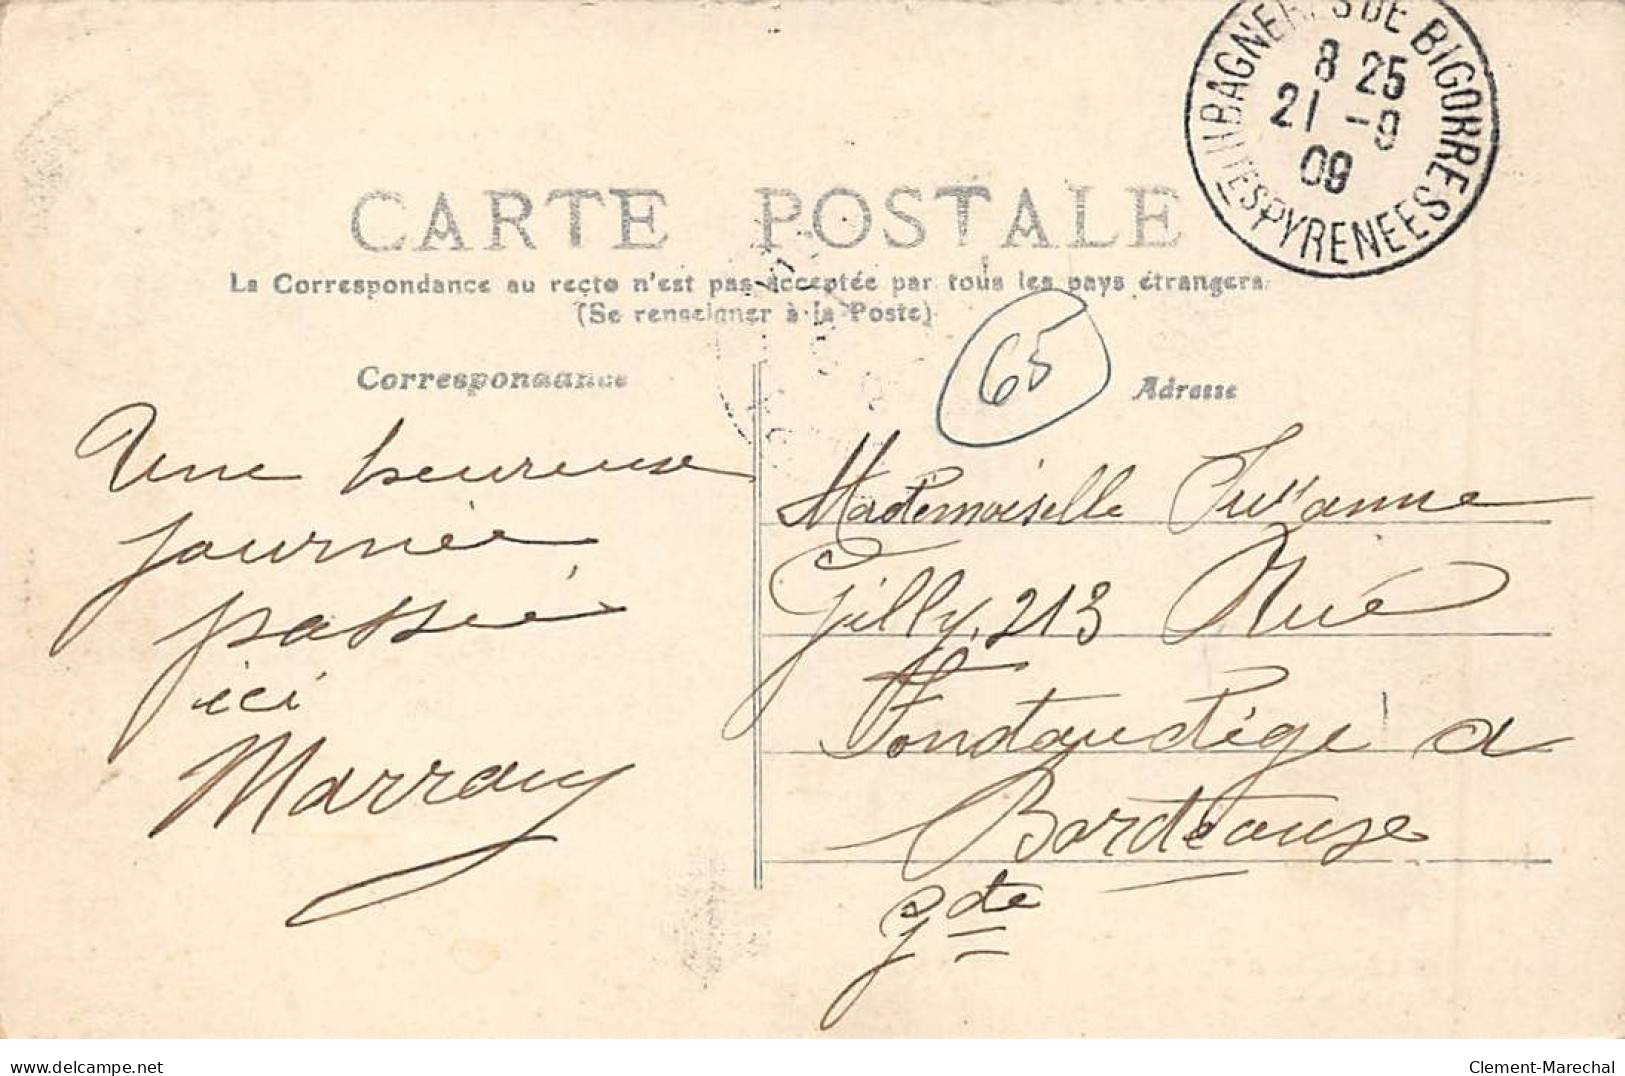 BAGNERES DE BIGORRES
8 25
21 -9
09
HTES PYRENEES
CARTE POSTALE
La Correspondance au recto n'est pas acceptée par tous les pays étrangers
(Se renseigner à la Poste)
65
Correspondance
Adresse
Une heureuse
journée
passée
ici
Marrauy
Mademoiselle Suzanne
Gilly, 213 Rue
Fondaudège à
Bordeaux
Gde
delcampe.net
Clement-Marechal